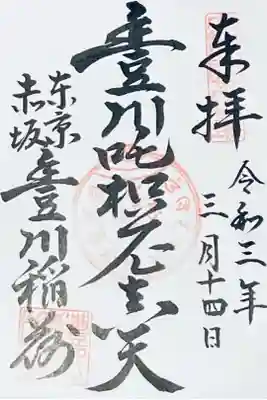 奉拝
令和三年
三月十四日
豊川吒枳尼真天
東京
赤坂
豊川稲荷